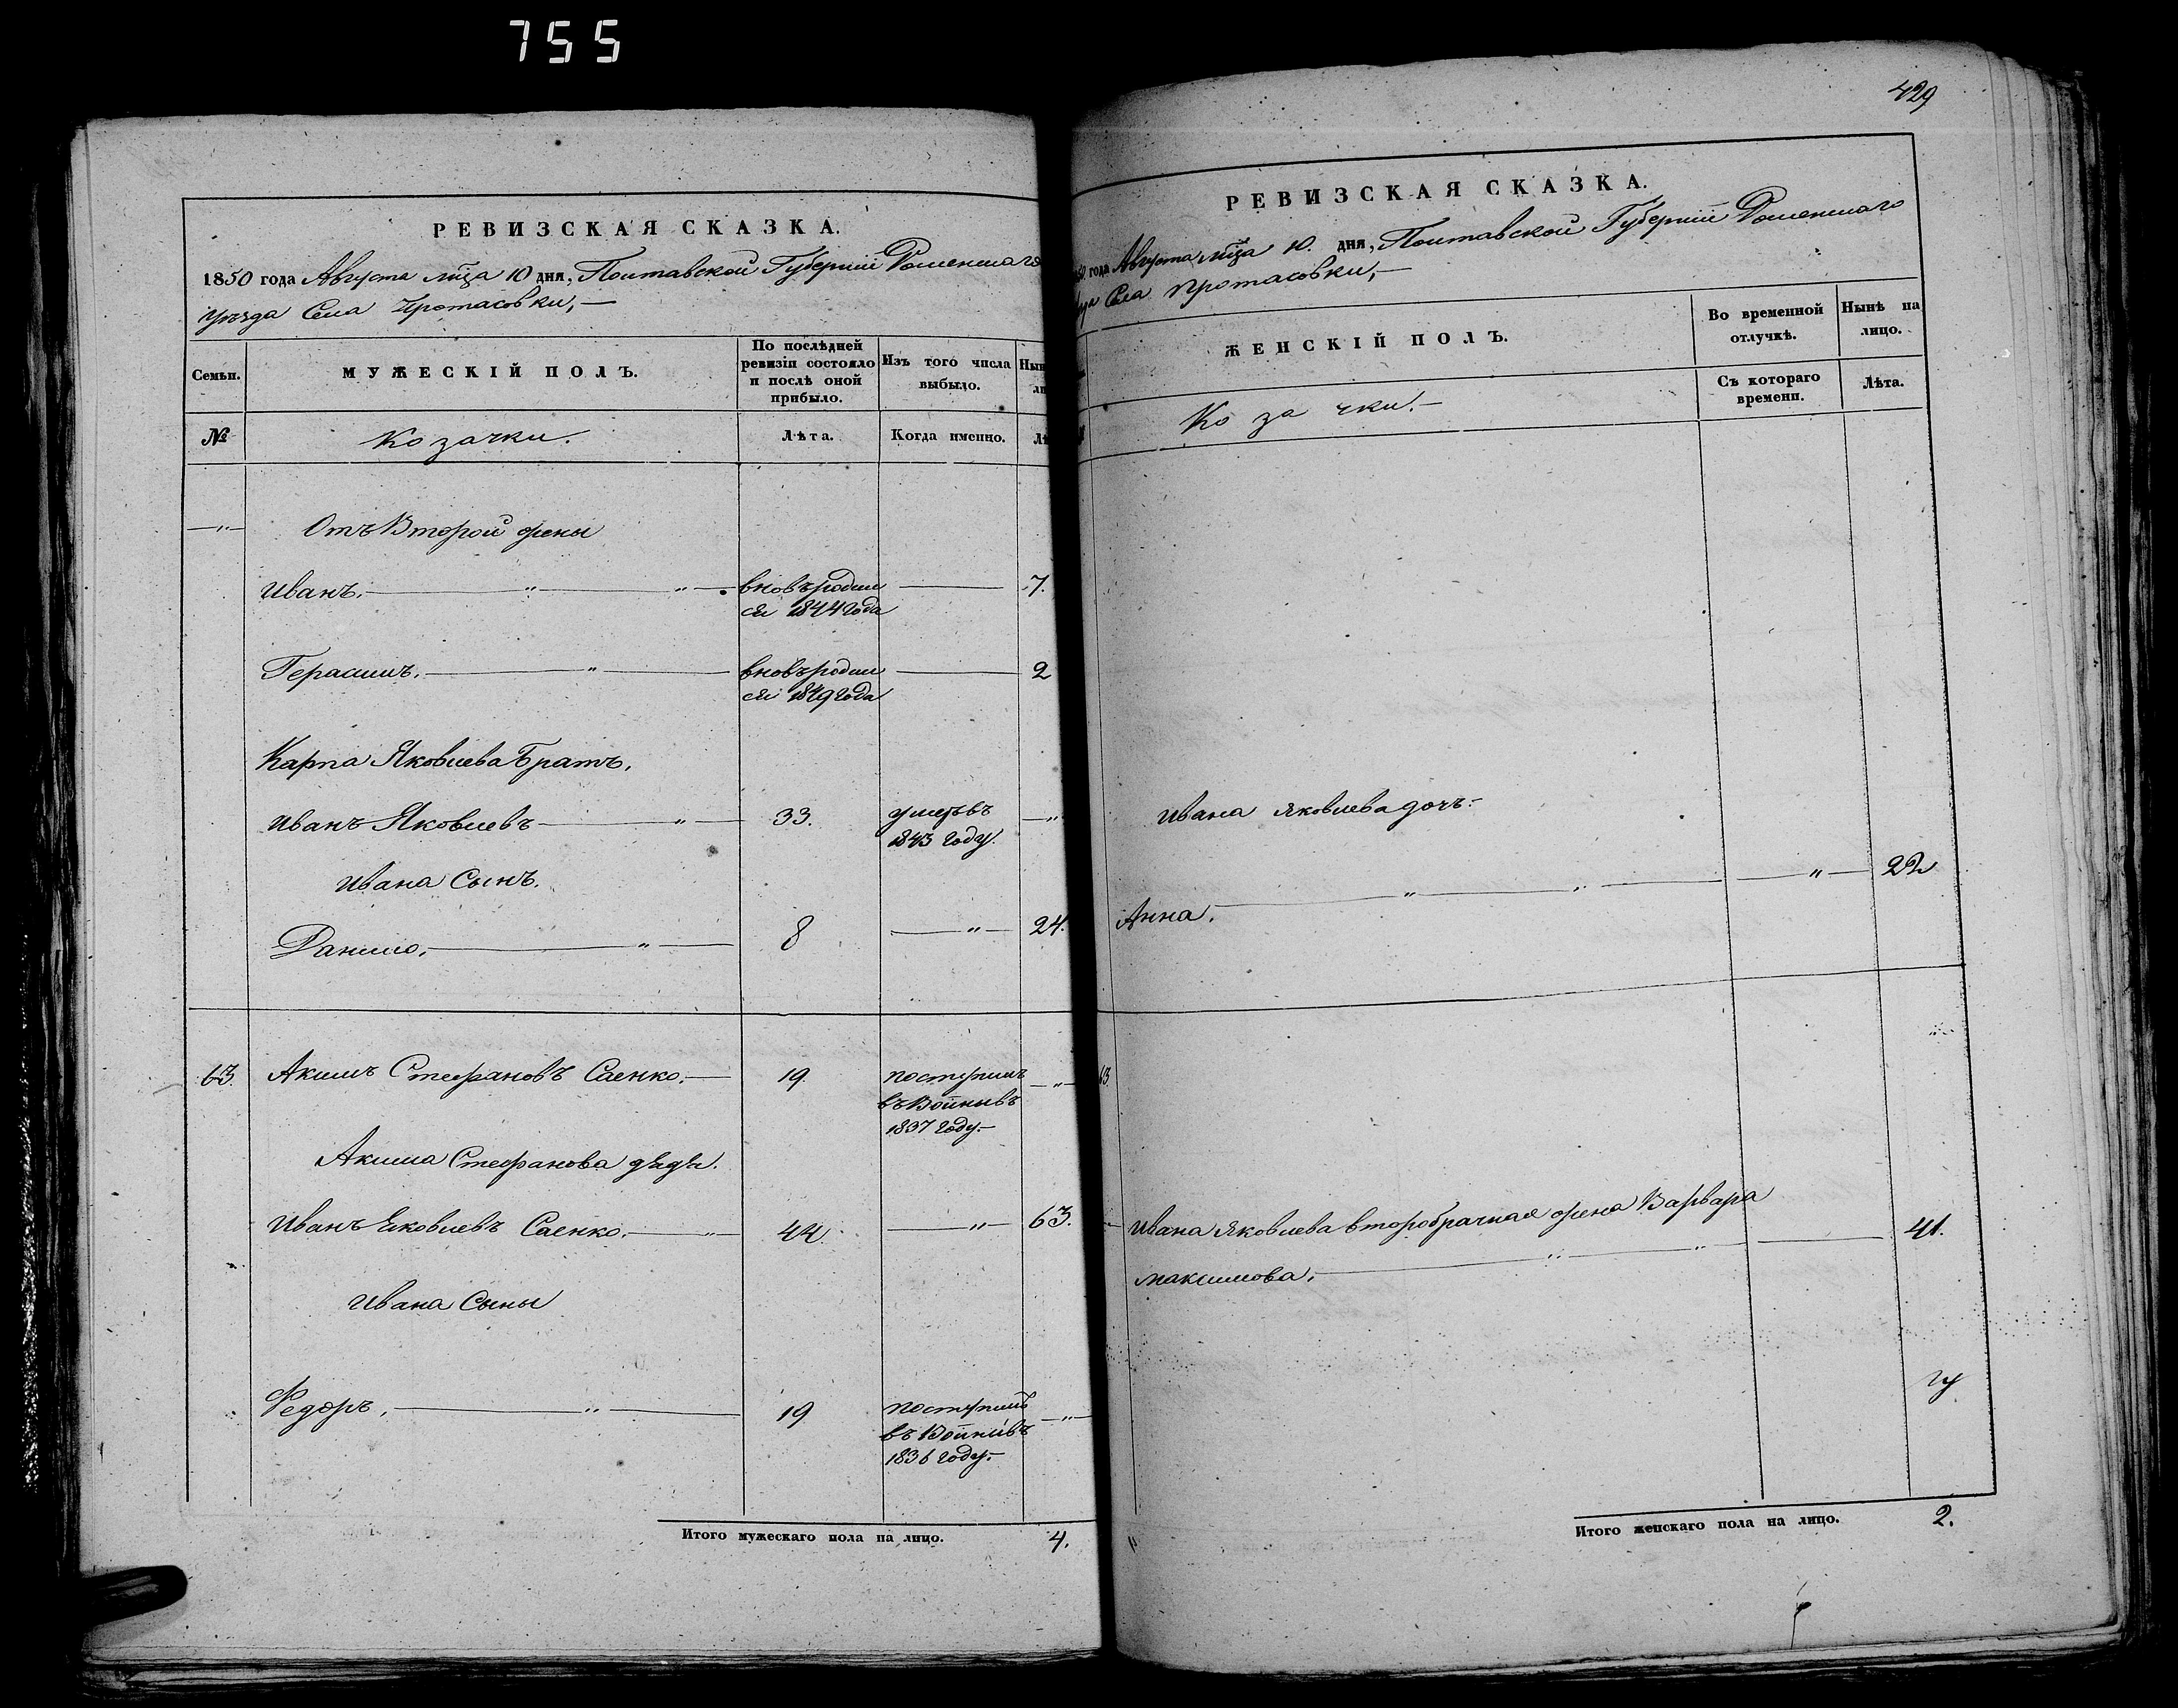 755
РЕВИЗСКАЯ СКАЗКА.
1850 года Августа мца 10 дня, Полтавской Губерніи Роменскаго
уѣзда Села Протасовки,—
Семьи.
МУЖЕСКІЙ ПОЛЪ.
По послѣдней
ревизіи состояло
и послѣ оной
прибыло.
Изъ того числа
выбыло.
№
Козачки.
Лѣта.
Когда именно.
—"— Отъ Второй жены
Иванъ. вновь родил
ся 1844 года 7.
Герасимъ. вновь родил
ся 1849 года 2
Карпа Яковлева Братъ.
Иванъ Яковлевъ 33. умеръ въ
1843 году. "
Ивана Сынъ.
Данило. 8 " 24.
63. Акимъ Стефановъ Саенко. 19. поступилъ
въ Войны въ
1837 году. "
Акима Стефанова дядя.
Иванъ Яковлевъ Саенко. 44. " 63.
Ивана Сыны
Федоръ. 19 поступилъ
въ Войны въ
1836 году. "
Итого мужескаго пола на лицо. 4.
429
РЕВИЗСКАЯ СКАЗКА.
года Августа мца 10. дня, Полтавской Губерніи Роменскаго
Села Протасовки,—
ЖЕНСКІЙ ПОЛЪ.
Во временной
отлучкѣ.
Нынѣ на
лицо.
Съ котораго
времени.
Лѣта.
Козачки.—
Ивана Яковлева дочь.—
Анна. " 22
63.
Ивана Яковлева второбрачная жена Варвара
Максимова. 41.
Итого женскаго пола на лицо. 2.